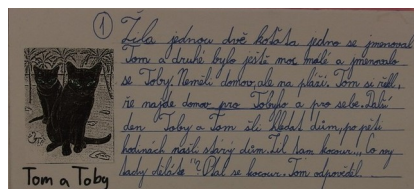 ①
Žila jednou dvě koťata jedno se jmenoval
Tom a druhé bylo ještě moc malé a jmenovalo
se Toby. Neměli domov, ale na pláži. Tom si řekl,
že najde domov pro Tobyho a pro sebe. Další
den Toby a Tom šli hledat dům, po pěti
hodinách našli starý dům. Žil tam kocour. „Co vy
tady děláte“? Ptal se kocour. Tom odpověděl.
Tom a Toby